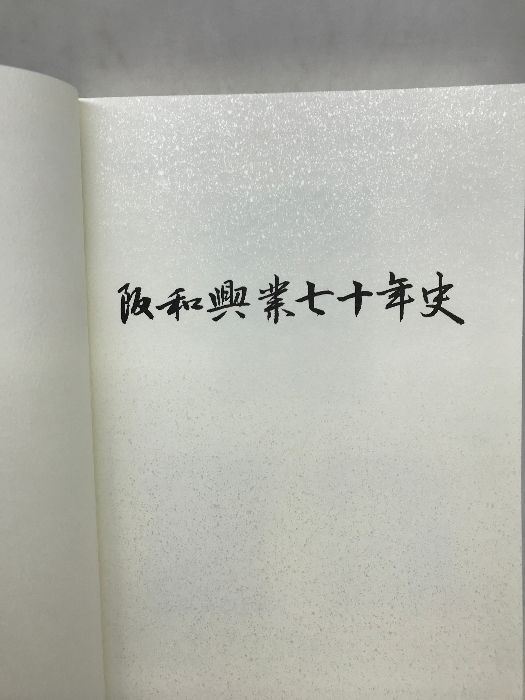 阪和興業七十年史